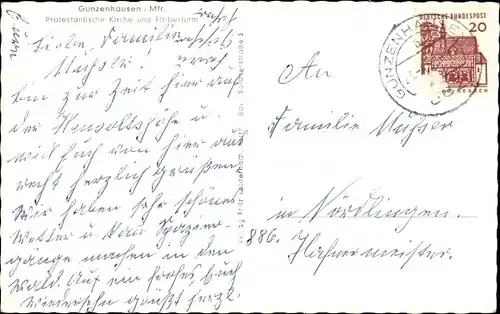 Gunzenhausen / Mfr.
Protestantische Kirche und Färberturm
Liebe Familie
bin zur Zeit hier auf
der Hensoltshöhe u.
will Euch von hier aus
recht herzlich grüßen
Wir haben sehr schönes
Wetter u. kann Spazier-
gänge machen in den
Wald. Auf ein frohes
Wiedersehn grüßt herzl.
An
Familie
in Nördlingen.
886. Hafnermeister.
DEUTSCHE BUNDESPOST
20
GUNZENHAUSEN